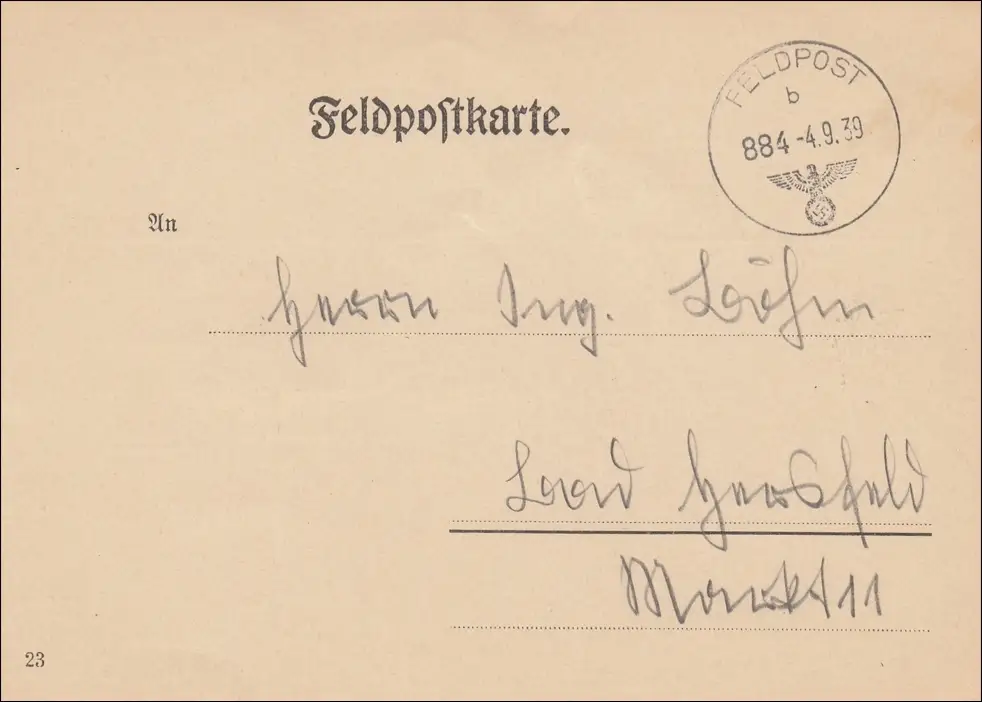 FELDPOST
b
884 -4.9.39
Feldpostkarte.
An
Herrn Ing. Böhm
Bad Hersfeld
Markt 11
23